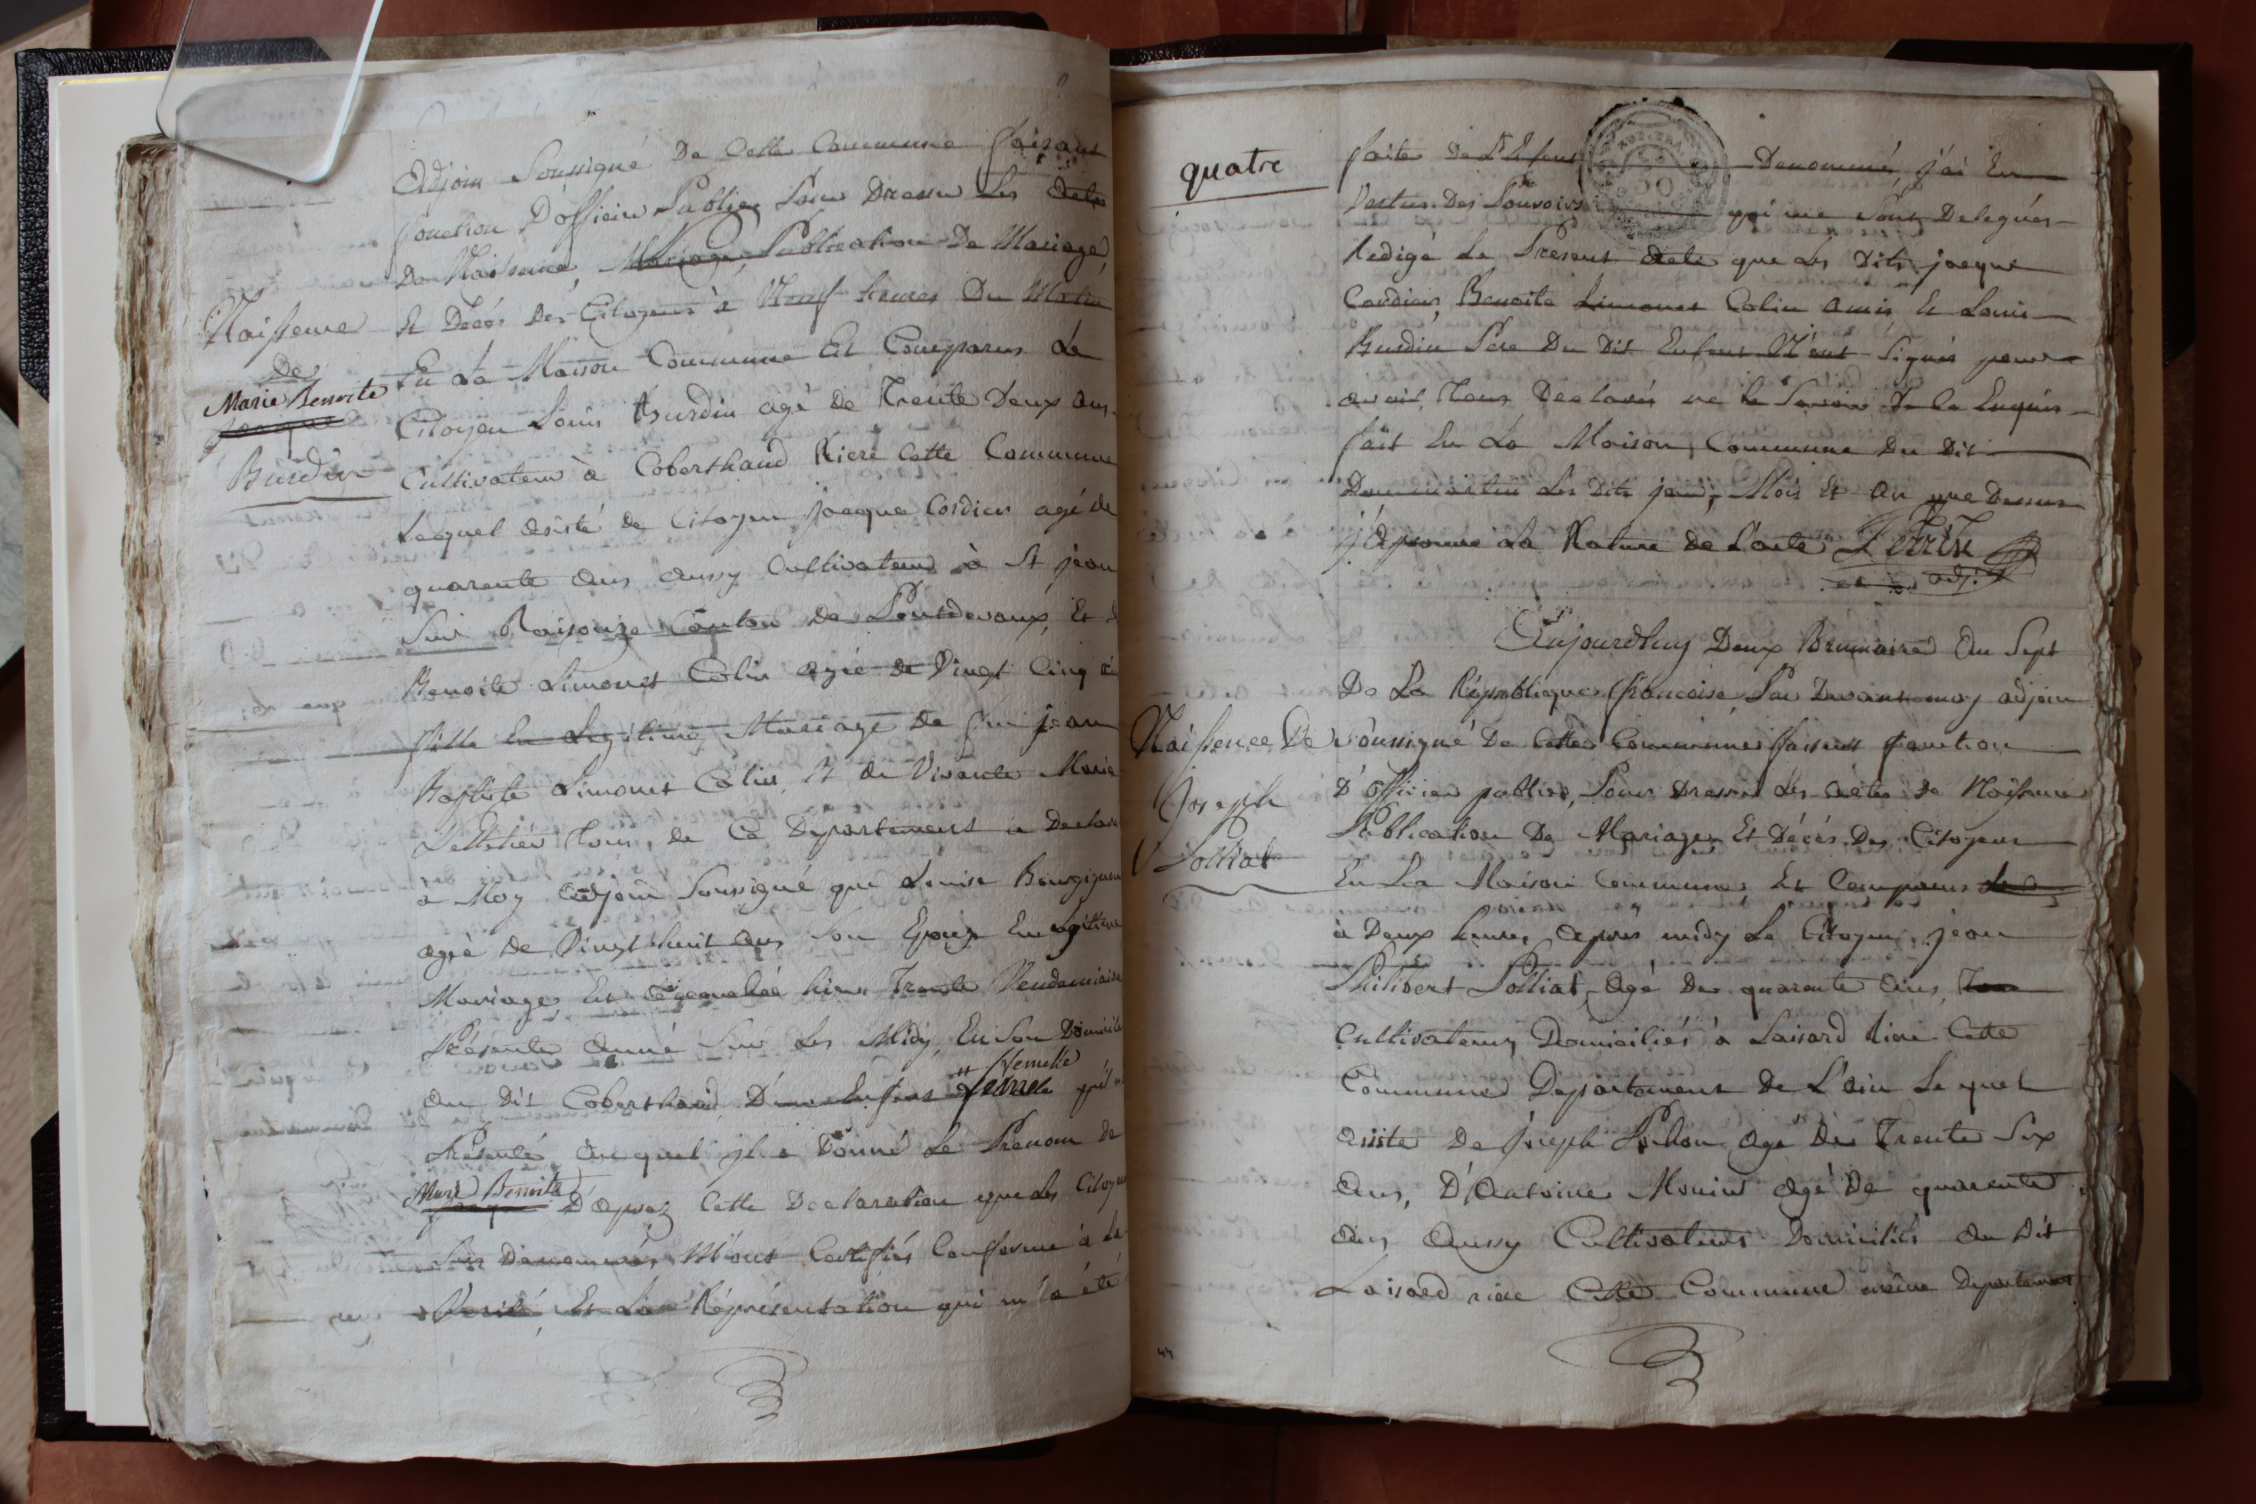 Adjoin Soussigné De Cette Commune faisant
fonction D'officier Public Pour Dresser Les Actes
De Naissance, Mariage, Publication De Mariage
Naissence
Et Décès Des Citoyens à Neuf heures Du Matin
de
En La Maison Commune Est Comparus Le
Marie Benoite
Jacque
Citoyen Louis Burdin agé de Trente Deux ans
Burdin
Cultivateur à Coberthaud Riere Cette Commune
Lequel assisté de Citoyen Jacque Cordier agé de
quarente ans aussy Cultivateur à St jean
Sur Raisouze Canton de Pontdevaux, Et d
Benoite Limonet Colin agée de Vingt Cinq
fille En Legitime Mariage de feu jean
Baptiste Limonet Colin, Et de Vivante Marie
Pelletier Tous, de Ce Departement a Declaré
a Moy adjoin Soussigné que Louise Bourgignon
agée de Vingt huit ans Son Epouze En Legitime
Mariage, Est Acouchée hier Trente Vendemiaire
Présente année Sur Les Midy, En Son Domicile
femelle
Au Dit Coberthaud D'un Enfant femele qu'il
Présenté Auquel il a Donné Le Prenom de
Marie Benoite
Jacque D'aprez Cette Declaration que Les Citoyens
Sus Denommés M'ont Certifiés Conforme à La
Verité, Et La Réprésentation qui m'a été
quatre
faite De L'Enfant Denommé, j'ai En
Vertus Des Pouvoirs qui me Sont Delegués
Redigé Le Present Acte que Les Dits jacque
Cordier, Benoite Limonet Colin amis Et Louis
Burdin Père Du Dit Enfant N'ont Signés pour
avoir Nous Declarés ne Le Savoir De Ce Enquis
fait En La Maison Commune Du Dit
Dommartin Les Dits jour, Mois Et An que Dessus
La Nature de L'acte
adj.
Aujourdhuy Deux Brumaire An Sept
De La République francoise, Par Devant moy adjoin
Naissence De
Soussigné De Cette Commune faisant fonction
Joseph
D'officier public, Pour Dresser Les Actes de Naissance
Polliat
Publication De Mariages Et Décès Des Citoyens
En La Maison Commune Est Comparus Le
à Deux heures apres midy Le Citoyen jean
Philibert Polliat, Agé De quarente Ans, Tous
Cultivateurs Domiciliés à Loisard riere Cette
Commune Departement De L'ain Le quel
assisté De Joseph Pochon agé De Trente Six
Ans, D'Antoine Monin Agé De quarente
Ans Aussy Cultivateurs Domiciliés Au Dit
Loisard riere Cette Commune même Departement